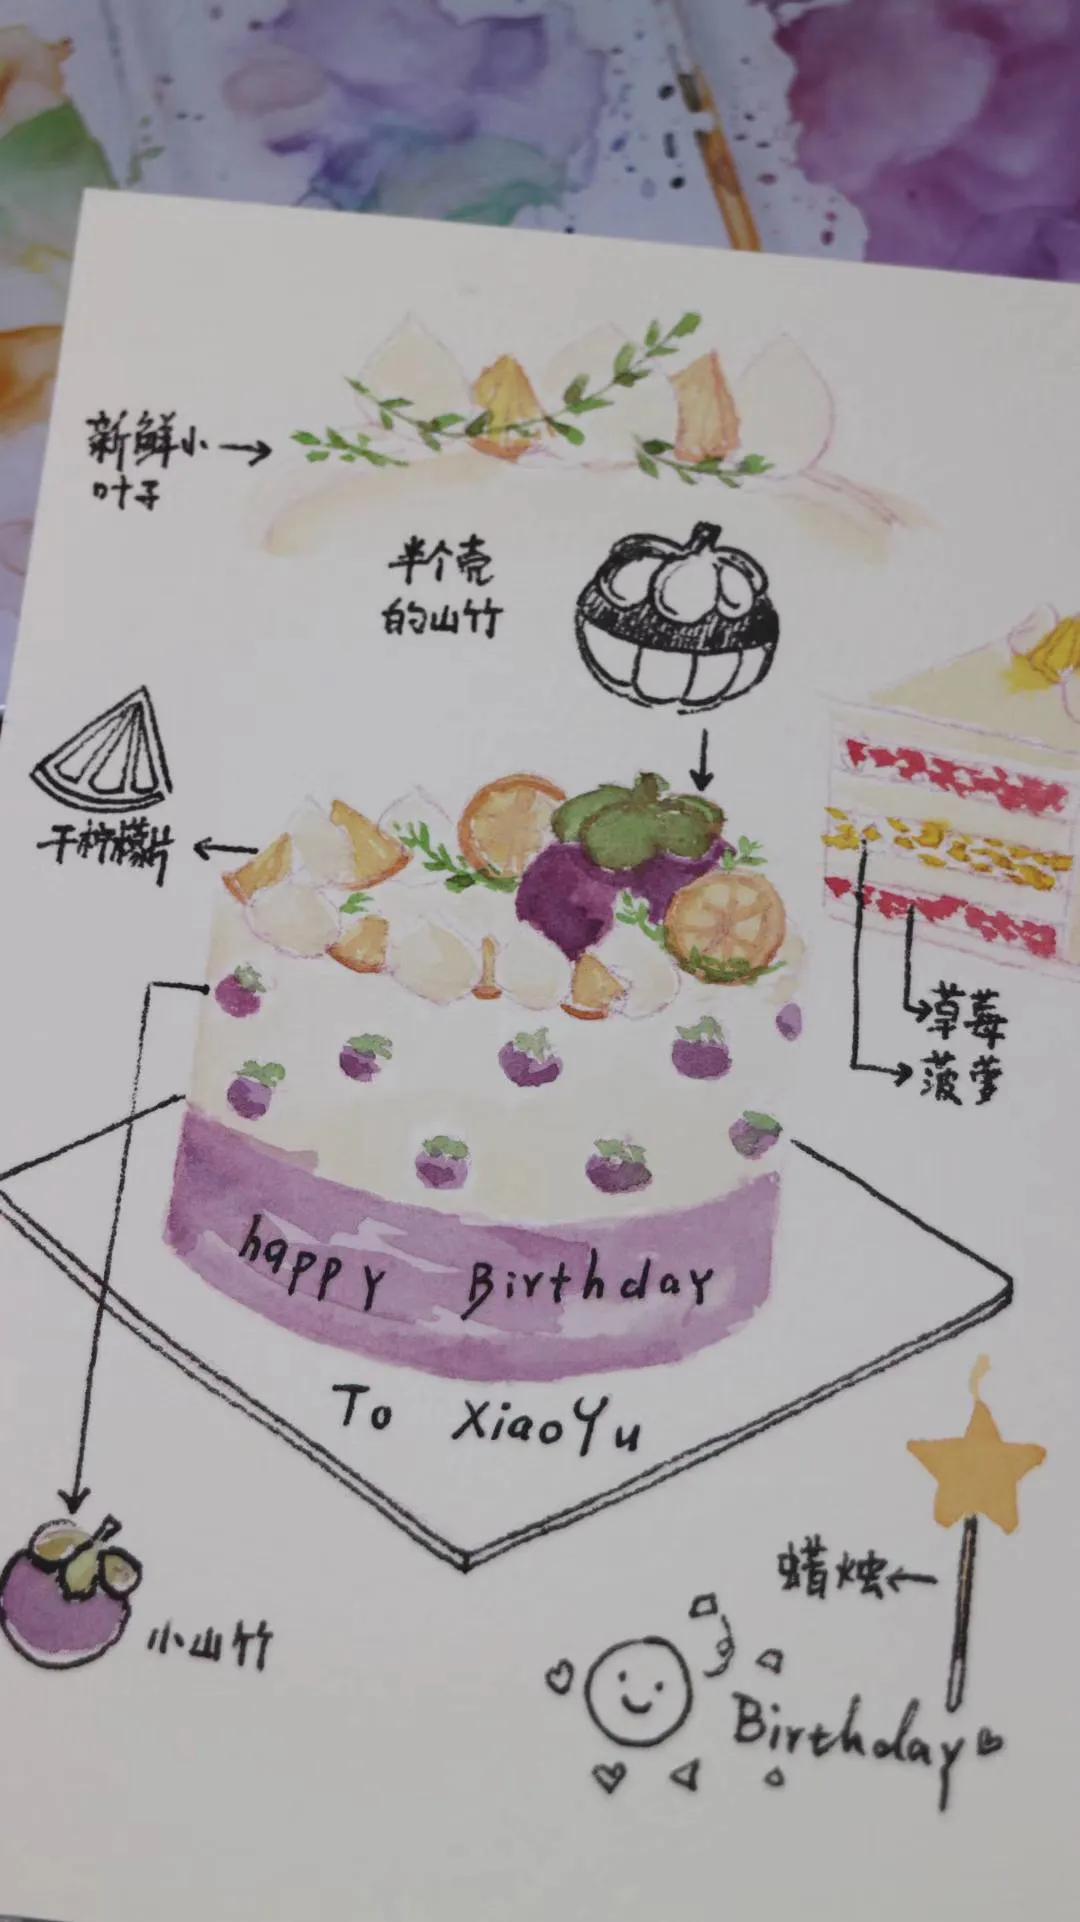 新鲜小
叶子
半个壳
的山竹
干柠檬片
草莓
菠萝
happy Birthday
To XiaoYu
蜡烛
小山竹
Birthday